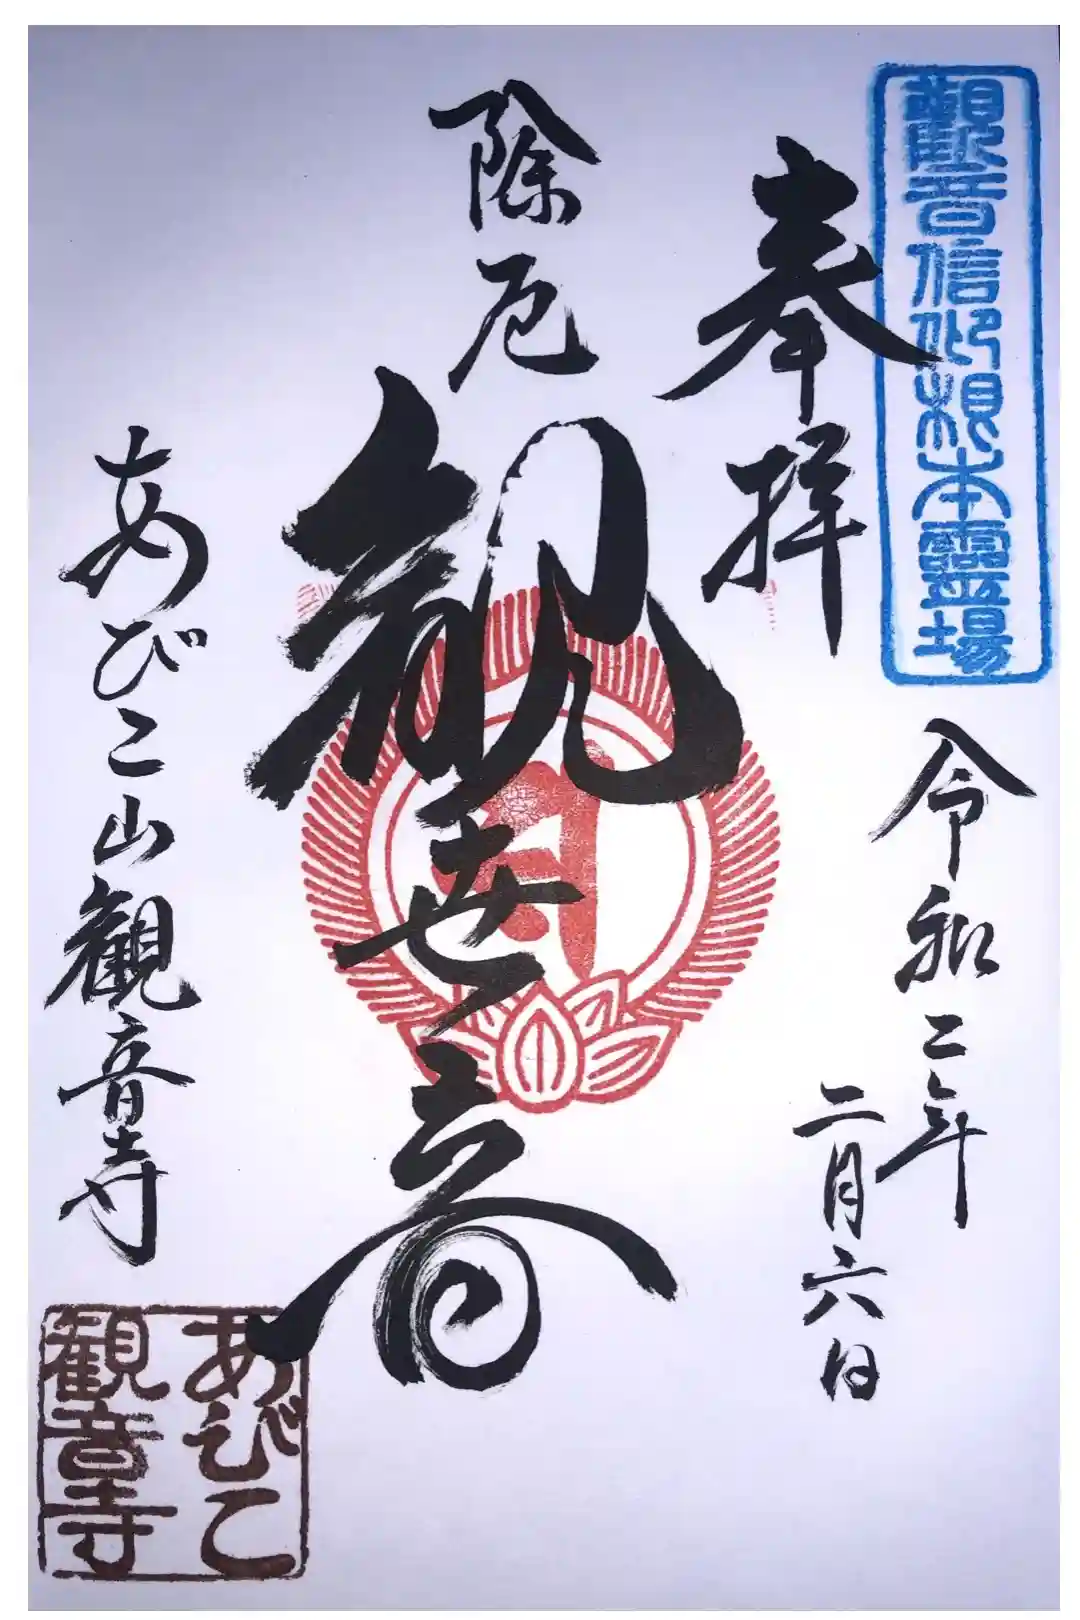 觀音信仰根本靈場
奉拝
令和二年
二月六日
除厄
観世音
あびこ山観音寺
あびこ
観音寺